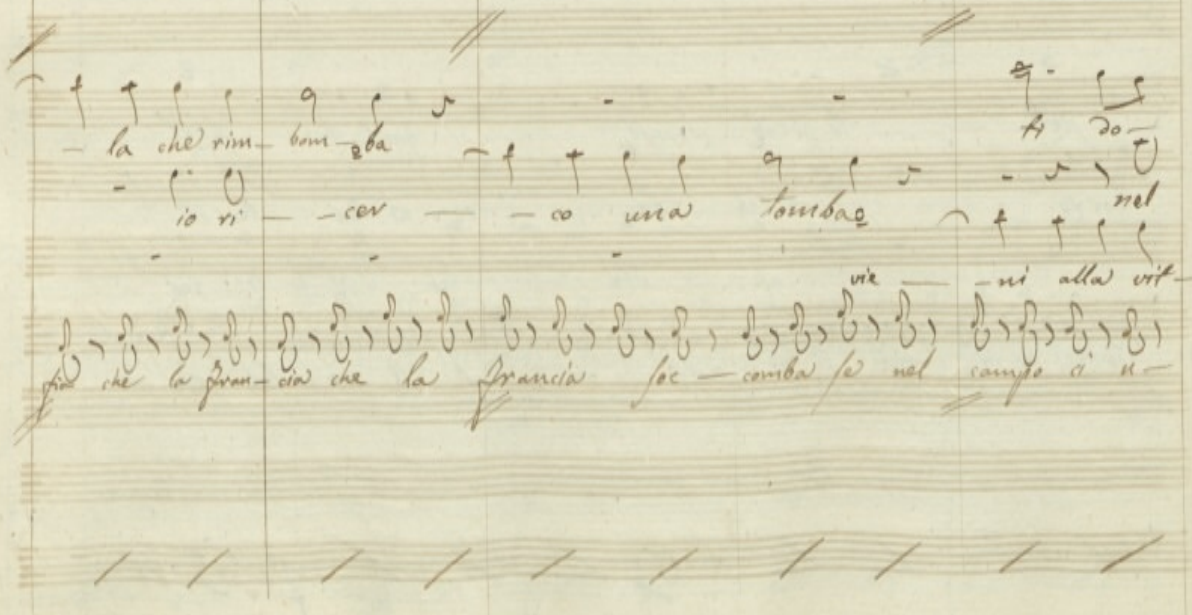 – la che rim – bom – ba
ti do –
io ri – – cer – – co una tomba
nel
vie – – ni alla vit –
che la fran – cia che la francia soc – comba se nel campo ci u –